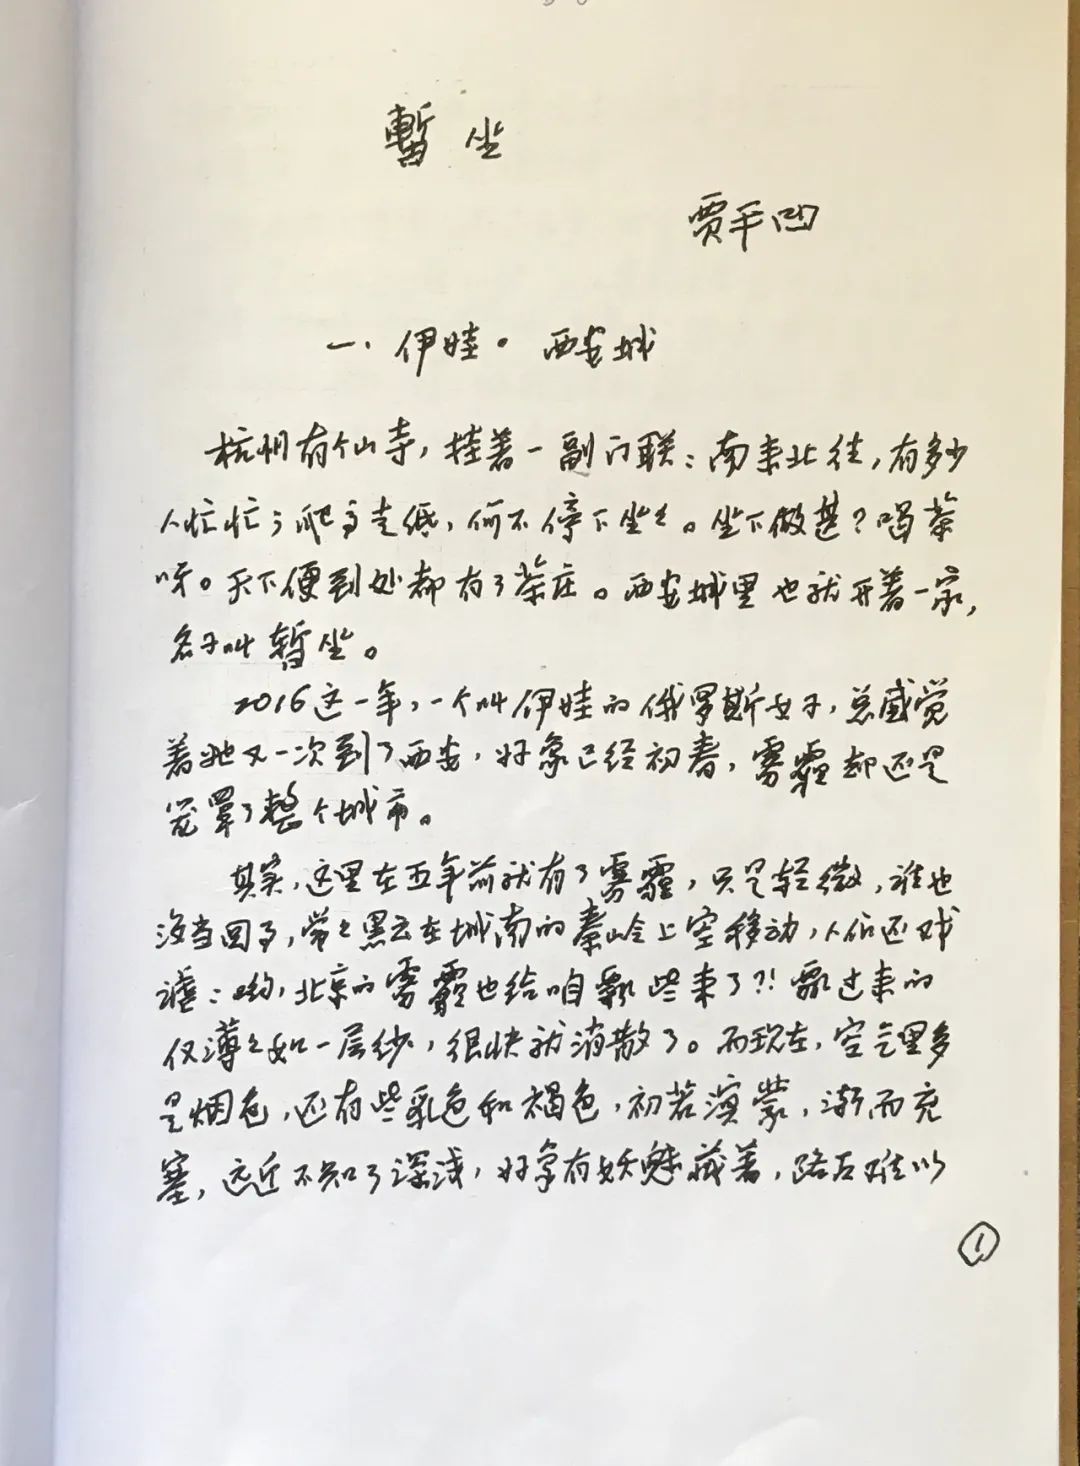 暫坐
贾平凹
一. 伊娃。西安城
杭州有个山寺，挂着一副门联：南来北往，有多少
人忙忙；爬高走低，何不停下坐々。坐下做甚？喝茶
呀。天下便到处都有了茶庄。西安城里也就开着一家，
名子叫暂坐。
2016这一年，一个叫伊娃的俄罗斯女子，总感觉
着她又一次到了西安，好象已经初春，雾霾却还是
笼罩了整个城市。
其实，这里在五年前就有了雾霾，只是轻微，谁也
没当回事，常々黑云在城南的秦岭上空移动，人们还戏
谑：哟，北京的雾霾也给咱飘些来了?! 飘过来的
仅薄々如一层纱，很快就消散了。而现在，空气里多
是烟色，还有些乳色和褐色，初若溟蒙，渐而充
塞，远近不知了深浅，好象有妖魅藏着，路石难以
1